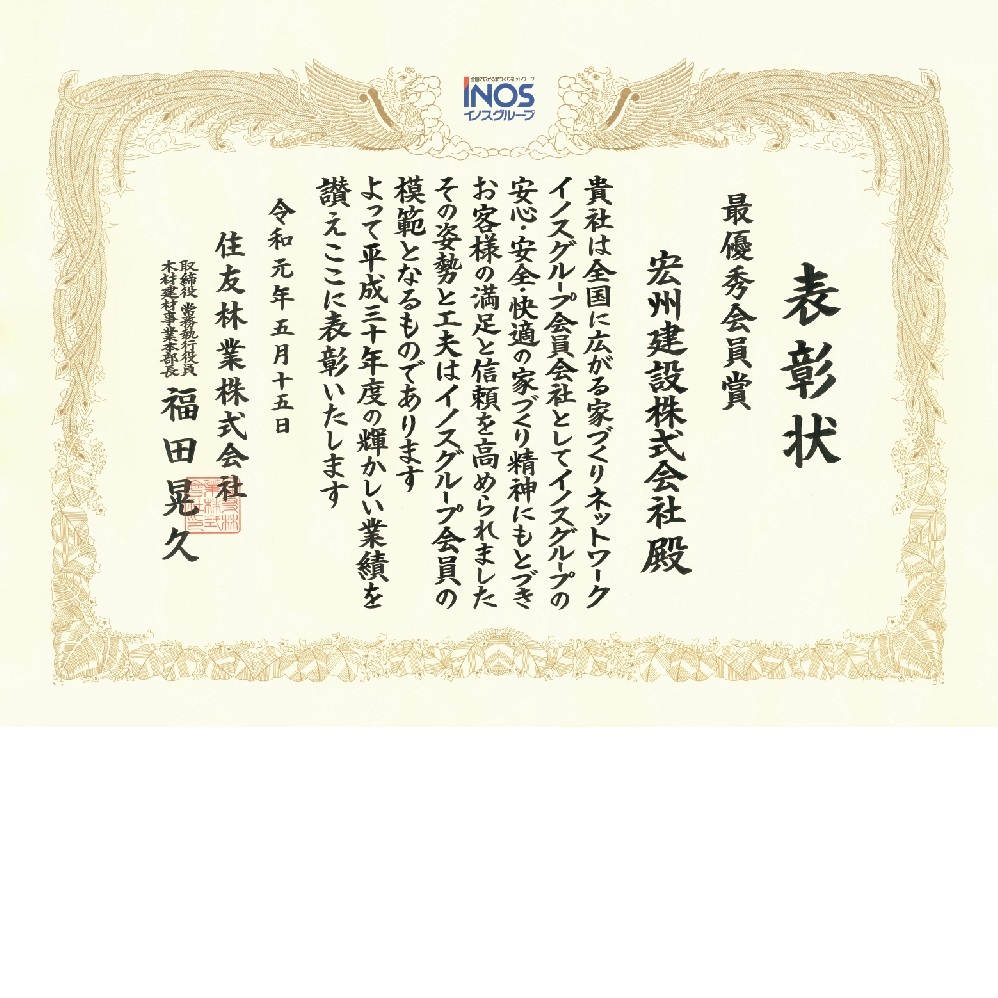 全国に広がる家づくりネットワーク
INOS
イノスグループ
表彰状
最優秀会員賞
宏州建設株式会社殿
貴社は全国に広がる家づくりネットワーク
イノスグループ会員会社としてイノスグループの
安心・安全・快適の家づくり精神にもとづき
お客様の満足と信頼を高められました
その姿勢と工夫はイノスグループ会員の
模範となるものであります
よって平成三十年度の輝かしい業績を
讃えここに表彰いたします
令和元年五月十五日
住友林業株式会社
取締役 常務執行役員
木材建材事業本部長
福田晃久